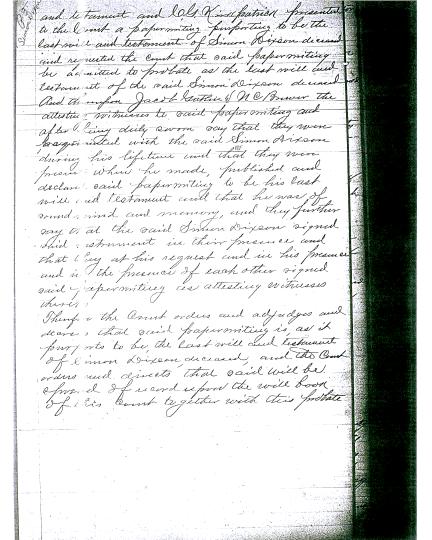 and testament and C G Kirkpatrick presented
to the Court a papermriting purporting to be the
last will and testament of Simon Dixson deceased
and requested the Court that said papermriting
be admitted to probate as the last will and
testament of the said Simon Dixson deceased
And thereupon Jacob & N C Bruner the
attesting witnesses to said papermriting and
after being duly sworn say that they were
acquainted with the said Simon Dixson
during his lifetime and that they were
present when he made, published and
declared said papermriting to be his last
will and testament and that he was of
sound mind and memory and they further
say that the said Simon Dixson signed
said instrument in their presence and
that they at his request and in his presence
and in the presence of each other signed
said papermriting as attesting witnesses
thereto.
Therefore the Court orders and adjudges and
decrees that said papermriting is, as it
purports to be, the last will and testament
of Simon Dixson, deceased, and the Court
orders and directs that said will be
spread of record upon the will book
of this Court together with this probate